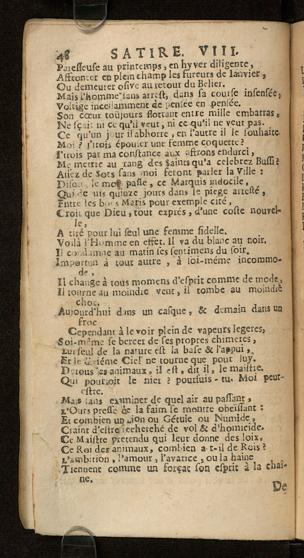 48 SATIRE. VIII.
Paresseuse au printemps, en hyver diligente,
Affronter en plein champ les fureurs de Ianvier,
Ou demeurer oisive au retour du Belier.
Mais l'homme sans arrest, dans sa course insensée,
Voltige incessamment de pensée en pensée.
Son cœur toujours flottant entre mille embarras,
Ne sçait ni ce qu'il veut, ni ce qu'il ne veut pas.
Ce qu'un jour il abhorre, en l'autre il le souhaite
Moi ? j'irois épouter une femme coquette ?
J'irois par ma constance aux affrons endurci,
Me mettre au rang des saints qu'a celebrez Bussi ?
Assez de Sots sans moi feront parler la Ville :
Disoit le mois passé, ce Marquis indocile,
Qui depuis quinze jours dans le piege arresté,
Entre les bons Maris pour exemple cité,
Croit que Dieu, tout exprés, d'une coste nouvel-
le,
A tiré pour lui seul une femme fidelle.
Voilà l'Homme en effet. Il va du blanc au noir.
Il condamne au matin ses sentimens du soir.
Importun à tout autre, à soi-mesme incommo-
de,
Il change à tous momens d'esprit comme de mode,
Il tourne au moindre veut, il tombe au moindre
choc,
Aujourd'hui dans un casque, & demain dans un
froc
Cependant à le voir plein de vapeurs legeres,
Soi-mesme se bercer de ses propres chimeres,
Lui seul de la nature est la base & l'appui,
Et le dixiéme Ciel ne tourne que pour luy.
De tous les animaux, il est, dit il, le maistre.
Qui pourroit le nier ? poursuis-tu. Moi peut-
estre.
Mais sans examiner de quel air au passant,
L'Ours pressé de la faim se montre obeïssant :
Et combien un Lion ou Gétule ou Numide,
Craint d'estre recherché de vol & d'homicide.
Ce Maistre pretendu qui leur donne des loix,
Ce Roi des animaux, combien a-t-il de Rois ?
L'ambition, l'amour, l'avarice, ou la haine
Tiennent comme un forçat son esprit à la chai-
ne.
De